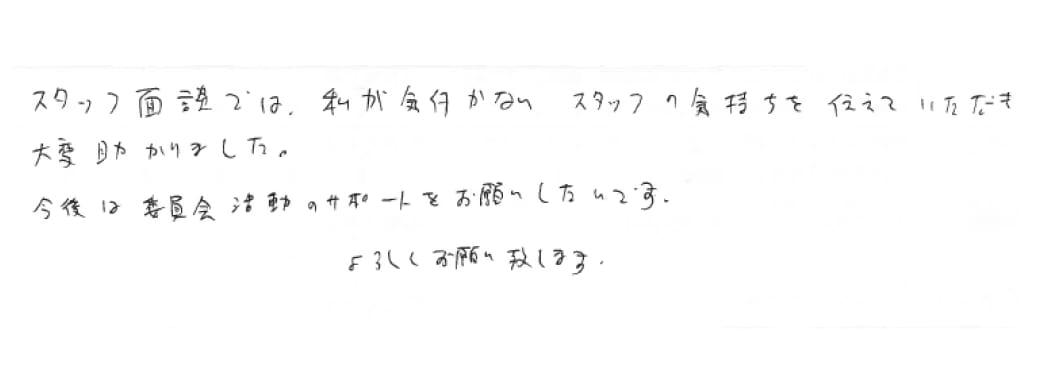 スタッフ面談では、私が気付かない スタッフの気持ちを 伝えて いただき
大変助かりました。
今後は委員会活動のサポートをお願いしたいです。
よろしくお願い致します。